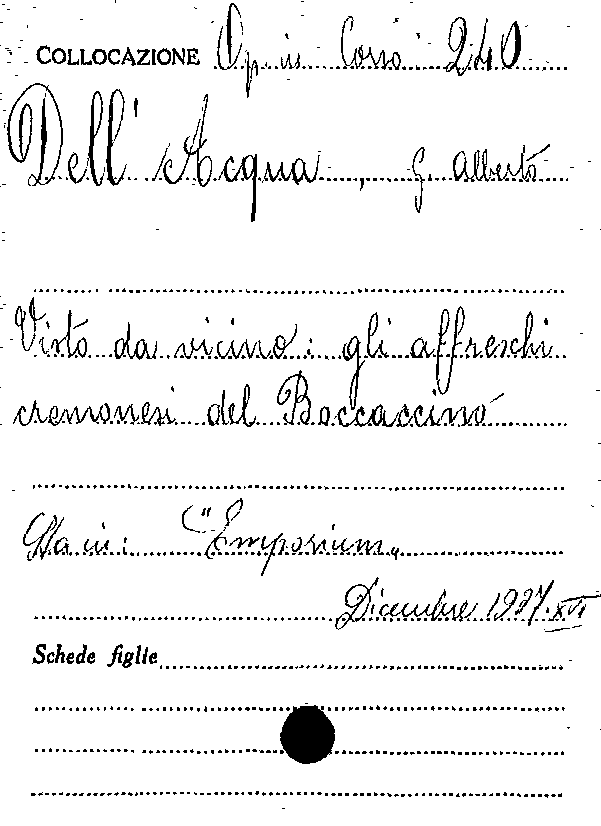 COLLOCAZIONE Op. in Corso 240
Dell'Acqua, G. Alberto
Visto da vicino: gli affreschi
cremonesi del Boccaccino
Sta in: "Emporium„
Dicembre 1937.XVI
Schede figlie